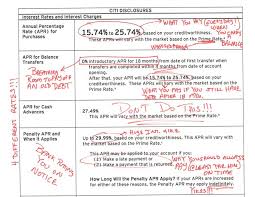 CITI DISCLOSURES
Interest Rates and Interest Charges
Annual Percentage
Rate (APR) for
Purchases
15.74% to 25.74% based on your creditworthiness.
These APRs will vary with the market based on the Prime Rate.
WHAT YOU PAY
WHEN
YOU
CARRY
A
BALANCE
APR for Balance
Transfers
0% introductory APR for 18 months from date of first transfer when
transfers are completed within 4 months from date of account
opening.
After that, your APR will be 15.74% to 25.74%, based on your
creditworthiness. This APR will vary with the market based on the
Prime Rate.
WHAT YOU PAY IF YOU STILL HAVE
DEBT AFTER 18 MOS
AN OLD DEBT
APR for Cash
Advances
27.49%
This APR will vary with the market based on the Prime Rate.
DON'T DO THIS!!!
Penalty APR and
When it Applies
Up to 29.99%, based on your creditworthiness. This APR will vary with
the market based on the Prime Rate.
This APR may be applied to your account if you:
(1) Make a late payment or
(2) Make a payment that is returned.
WHY YOU SHOULD ALWAYS
PAY
ON TIME
How Long Will the Penalty APR Apply? If your APRs are increased
for either of these reasons, the Penalty APR may apply indefinitely.
BANK
ON
NOTICE
4 DIFFERENT RATES!!!